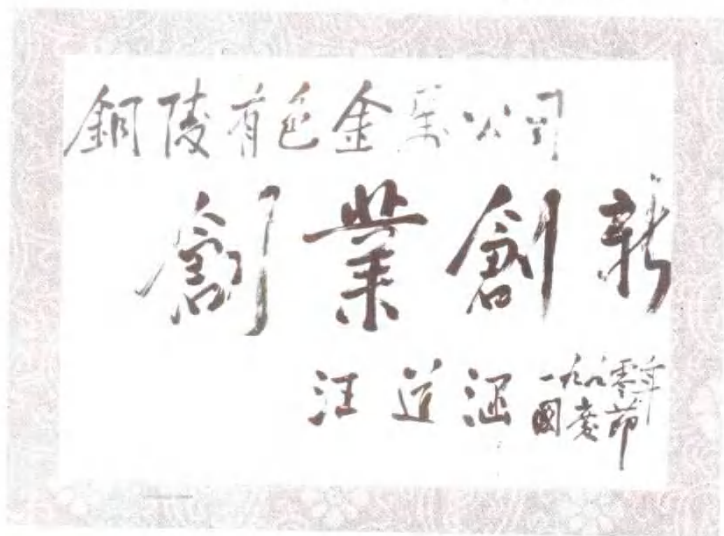 銅陵有色金属公司
創業創新
汪道涵
一九八零年
國慶節